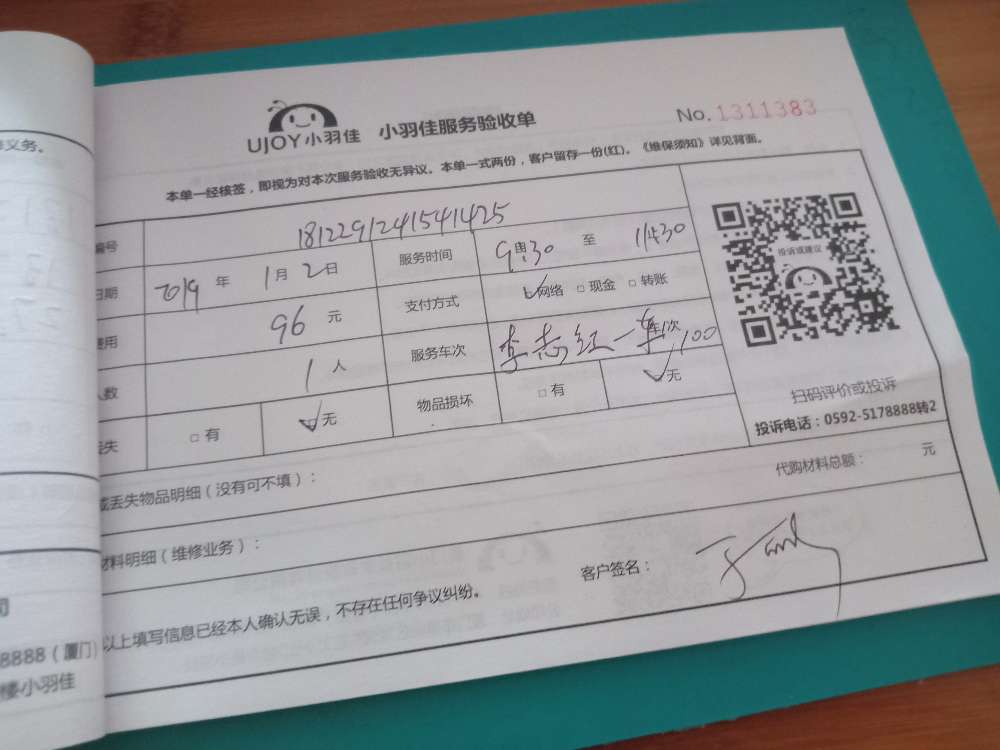 UJOY小羽佳 小羽佳服务验收单 No.1311383
本单一经核签，即视为对本次服务验收无异议。本单一式两份，客户留存一份(红)。《维保须知》详见背面。
编号 1812291241541425
日期 2019 年 1 月 2 日 服务时间 9时30 至 11时30
费用 96 元 支付方式 网络 □现金 □转账
人数 1 人 服务车次 李志红一车 车/次 100
丢失 □有 无 物品损坏 □有 无
投诉或建议
扫码评价或投诉
投诉电话：0592-5178888转2
或丢失物品明细（没有可不填）： 代购材料总额： 元
材料明细（维修业务）：
客户签名：
以上填写信息已经本人确认无误，不存在任何争议纠纷。
义务。
司
8888（厦门）
楼小羽佳